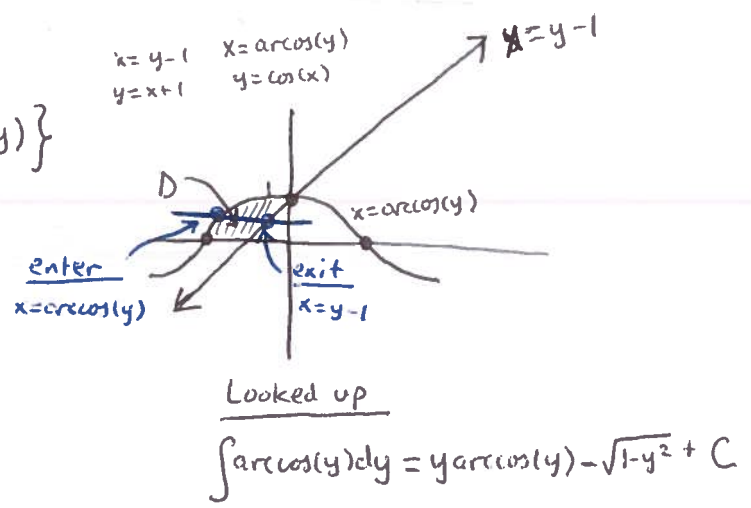 x = y-1    x = arccos(y)
y = x+1    y = cos(x)
x = y-1
y)}
D
1
x = arccos(y)
enter
x = arccos(y)
exit
x = y-1
Looked up
∫arccos(y)dy = y arccos(y) - √1-y² + C